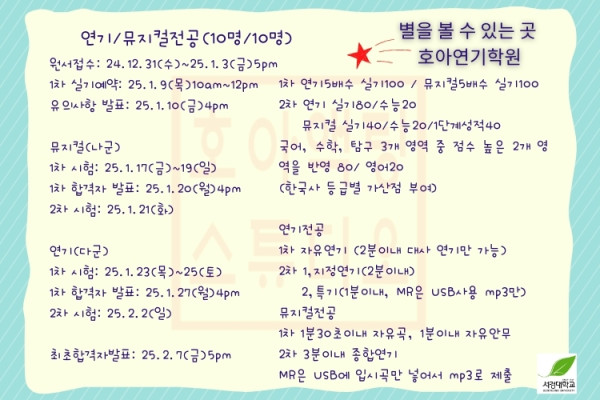 연기/뮤지컬전공(10명/10명)
별을 볼 수 있는 곳
호아연기학원
원서접수: 24.12.31(수)~25.1.3(금)5pm
1차 실기예약: 25.1.9(목)10am~12pm
유의사항 발표: 25.1.10(금)4pm
뮤지컬(나군)
1차 시험: 25.1.17(금)~19(일)
1차 합격자 발표: 25.1.20(월)4pm
2차 시험: 25.1.21(화)
연기(다군)
1차 시험: 25.1.23(목)~25(토)
1차 합격자 발표: 25.1.27(월)4pm
2차 시험: 25.2.2(일)
최초합격자발표: 25.2.7(금)5pm
1차 연기5배수 실기100 / 뮤지컬5배수 실기100
2차 연기 실기80/수능20
뮤지컬 실기40/수능20/1단계성적40
국어, 수학, 탐구 3개 영역 중 점수 높은 2개 영
역을 반영 80/ 영어20
(한국사 등급별 가산점 부여)
연기전공
1차 자유연기 (2분이내 대사 연기만 가능)
2차 1,지정연기(2분이내)
2,특기(1분이내, MR은 USB사용 mp3만)
뮤지컬전공
1차 1분30초이내 자유곡, 1분이내 자유안무
2차 3분이내 종합연기
MR은 USB에 입시곡만 넣어서 mp3로 제출
호아연기
스튜디오
서경대학교